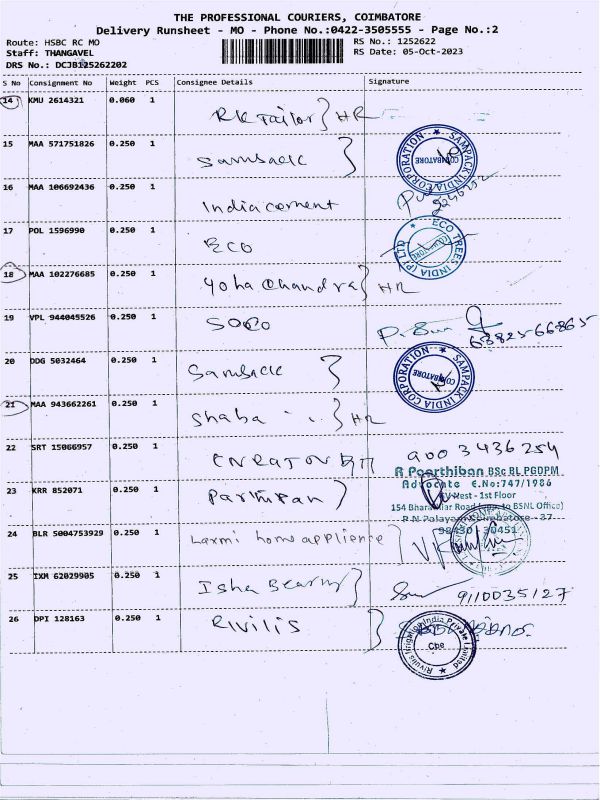 THE PROFESSIONAL COURIERS, COIMBATORE
Delivery Runsheet - MO - Phone No.:0422-3505555 - Page No.:2
Route: HSBC RC MO
RS No.: 1252622
Staff: THANGAVEL
RS Date: 05-Oct-2023
DRS No.: DCJB125262202
S No Consignment No Weight PCS Consignee Details Signature
14 KMU 2614321 0.060 1 RK Tailor } HR
15 MAA 571751826 0.250 1 Samback }
SAMPACK INDIA CORPORATION COIMBATORE
16 MAA 106692436 0.250 1 India cement
17 POL 1596990 0.250 1 ECO
ECO TREES INDIA (P) LTD
18 MAA 102276685 0.250 1 Yoha Chandra } HR
19 VPL 944045526 0.250 1 SOCO
63825 66865
20 DDG 5032464 0.250 1 Samback }
SAMPACK INDIA CORPORATION COIMBATORE
21 MAA 943662261 0.250 1 Shaba } HR
22 SRT 15066957 0.250 1 900 3436254
23 KRR 852071 0.250 1 Parthipan }
R Paarthiban BSc BL PGDPM
Advocate E.No:747/1986
West - 1st Floor
154 Road to BSNL Office)
R N Palayam Coimbatore - 37
98430 30451
24 BLR S004753929 0.250 1 Laxmi home applience }
25 IXM 62029905 0.250 1 Isha }
9110035127
26 DPI 128163 0.250 1 Rivilis }
Rivulis Irrigation India Private Limited Cbe